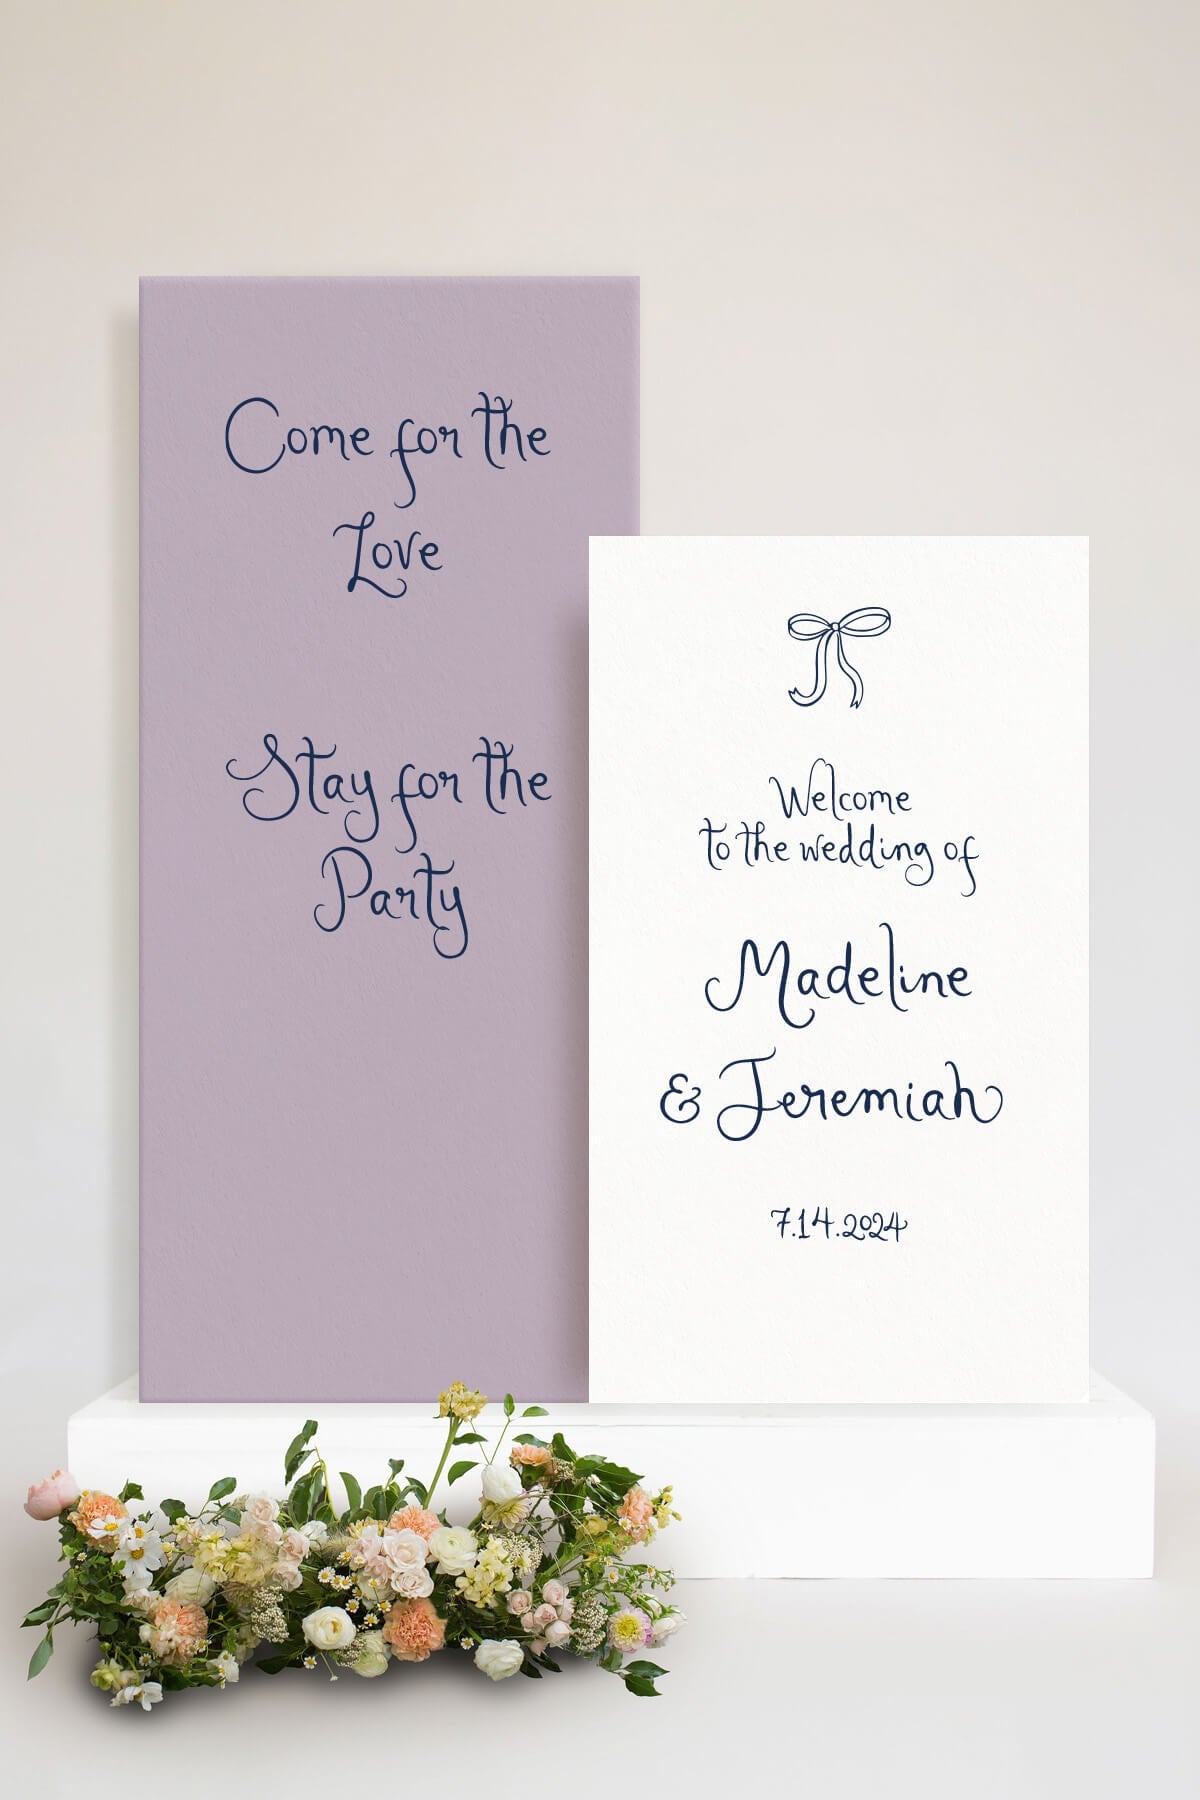 Come for the
Love
Stay for the
Party
Welcome
to the wedding of
Madeline
& Jeremiah
7.14.2024